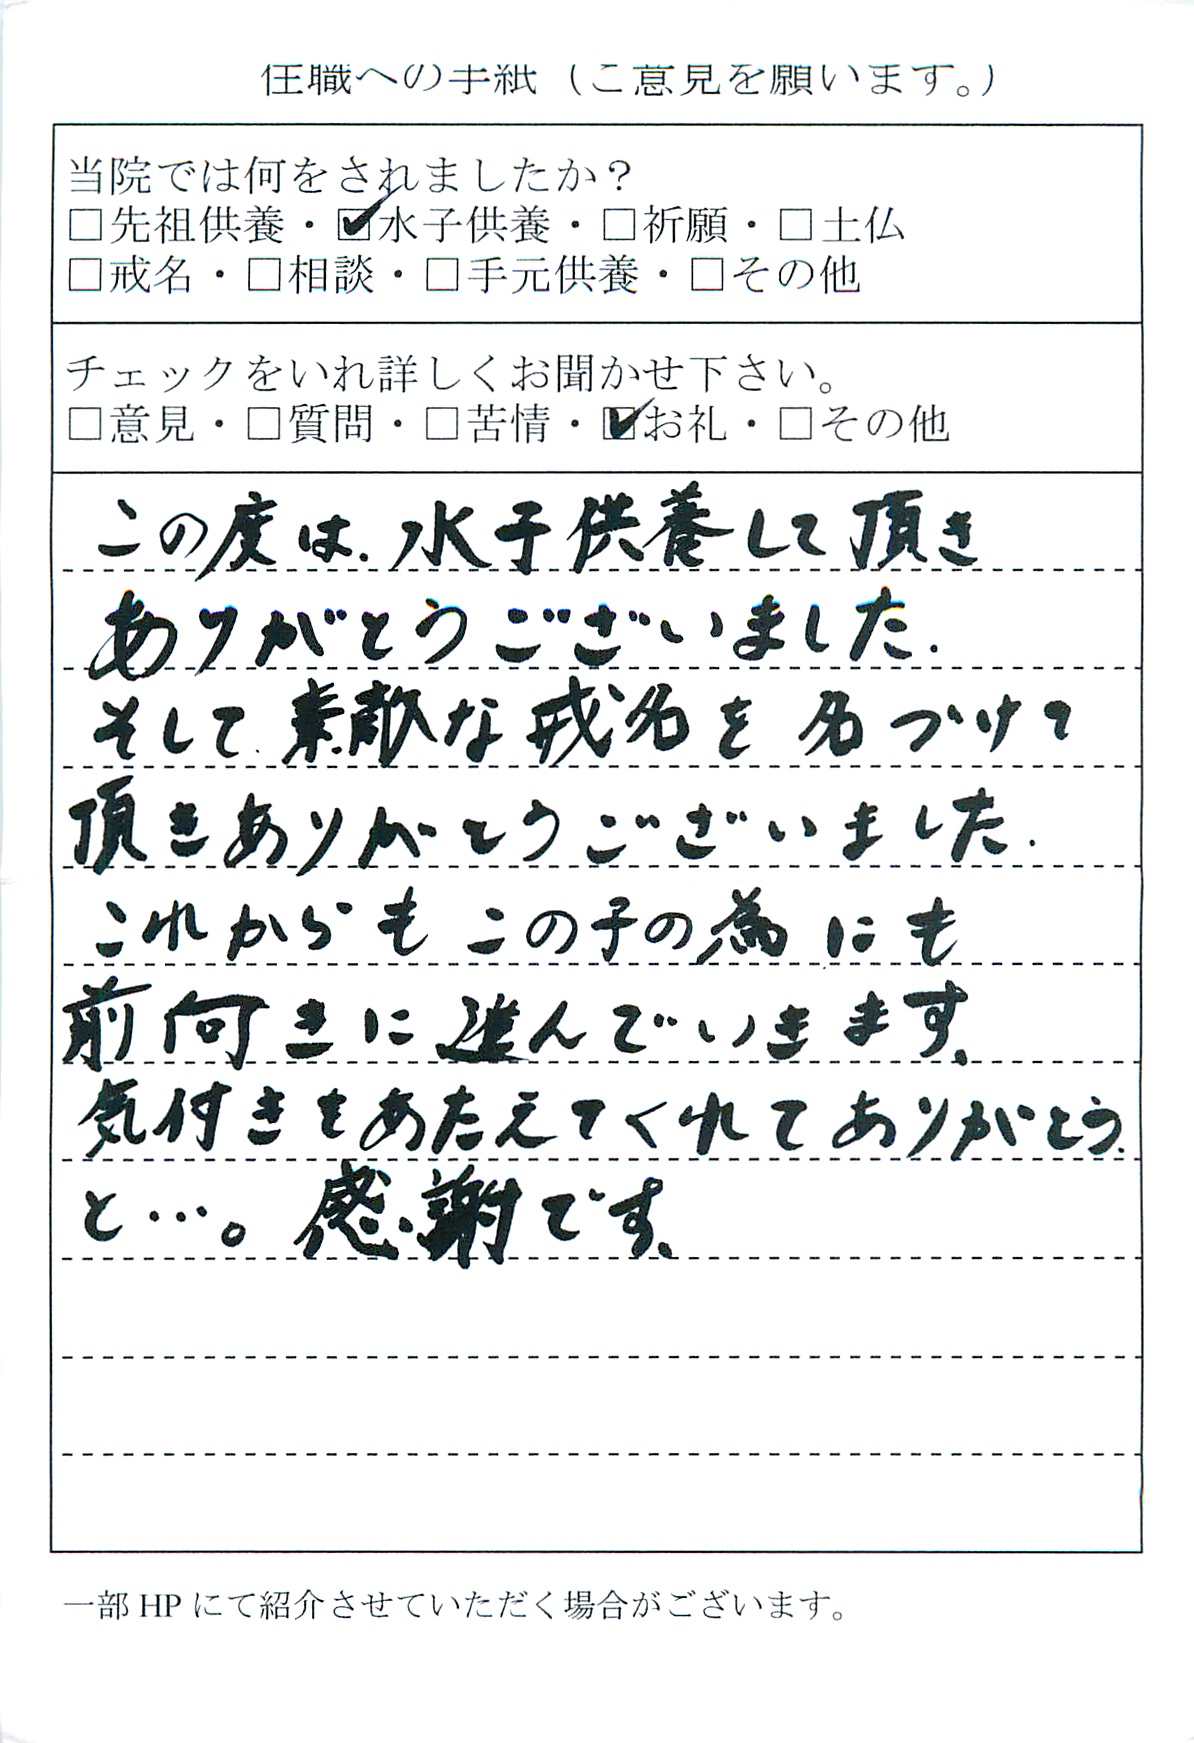 住職への手紙（ご意見を願います。）
当院では何をされましたか？
□先祖供養・☑水子供養・□祈願・□土仏
□戒名・□相談・□手元供養・□その他
チェックをいれ詳しくお聞かせ下さい。
□意見・□質問・□苦情・☑お礼・□その他
この度は、水子供養して頂き
ありがとうございました。
そして、素敵な戒名を名づけて
頂きありがとうございました。
これからもこの子の為にも
前向きに進んでいきます。
気付きをあたえてくれてありがとう。
と…。感謝です。
一部HPにて紹介させていただく場合がございます。